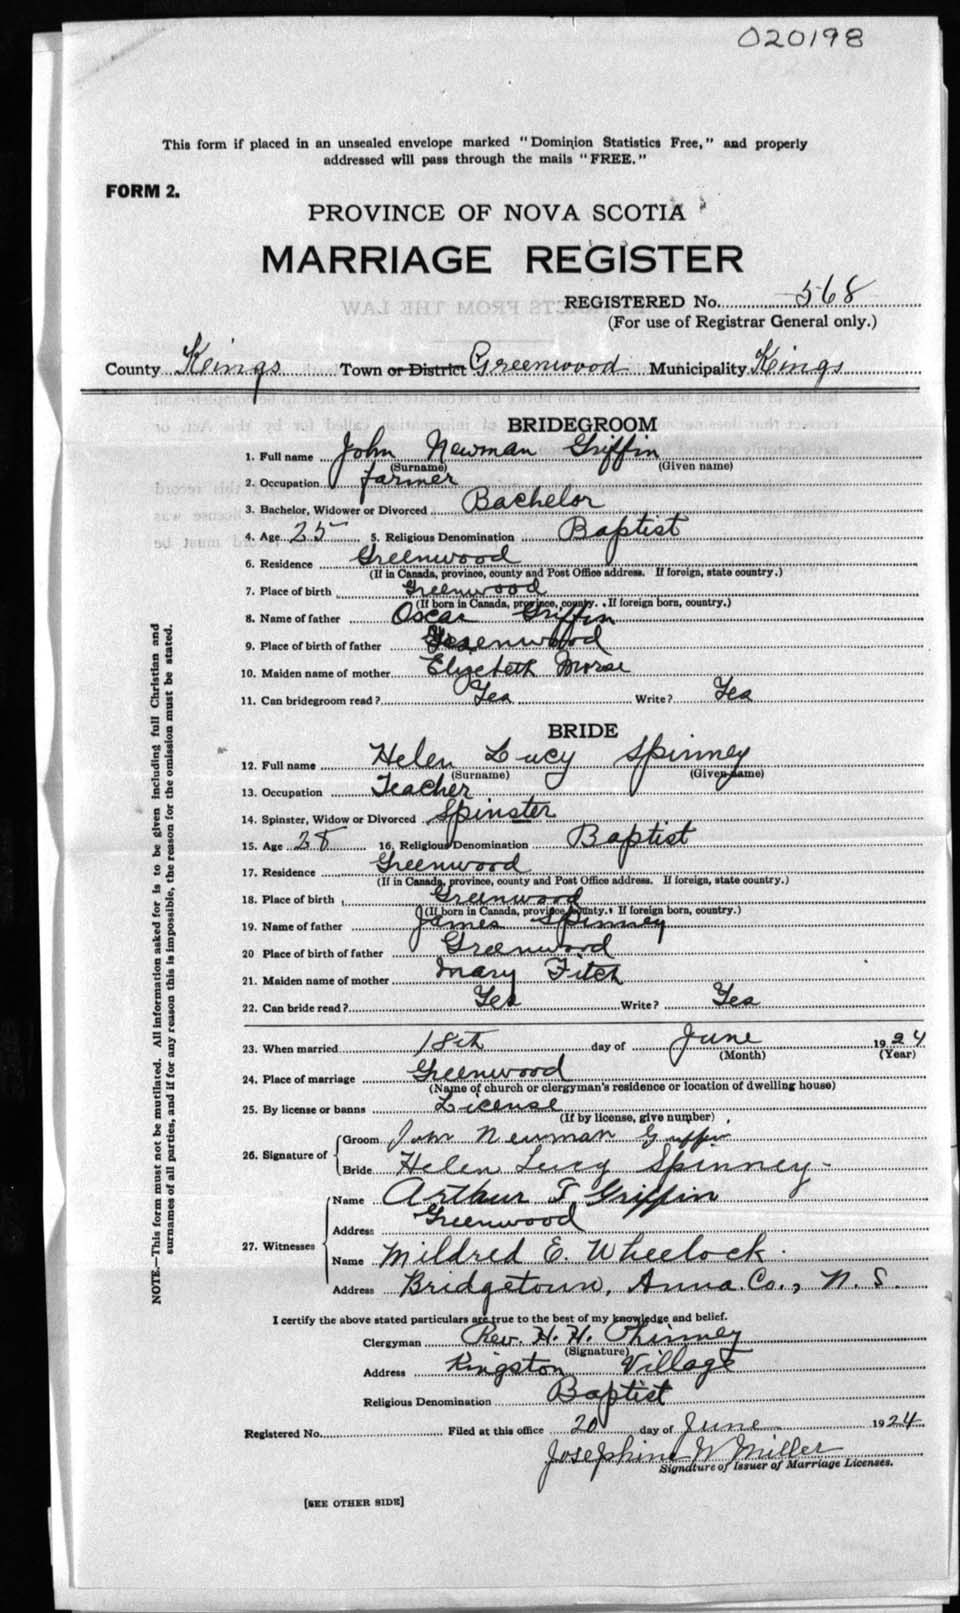 020198
This form if placed in an unsealed envelope marked "Dominion Statistics Free," and properly
addressed will pass through the mails "FREE."
FORM 2.
PROVINCE OF NOVA SCOTIA
MARRIAGE REGISTER
REGISTERED No. 568
(For use of Registrar General only.)
County Keings Town or District Greenwood Municipality Keings
BRIDEGROOM
1. Full name John Newman Griffin
(Surname) (Given name)
2. Occupation farmer
3. Bachelor, Widower or Divorced Bachelor
4. Age 25 5. Religious Denomination Baptist
6. Residence Greenwood
(If in Canada, province, county and Post Office address. If foreign, state country.)
7. Place of birth Greenwood
(If born in Canada, province, county. If foreign born, country.)
8. Name of father Oscar Griffin
9. Place of birth of father Greenwood
10. Maiden name of mother Elizebeth Morse
11. Can bridegroom read? Yes Write? Yes
BRIDE
12. Full name Helen Lucy Spinney
(Surname) (Given name)
13. Occupation Teacher
14. Spinster, Widow or Divorced Spinster
15. Age 28 16. Religious Denomination Baptist
17. Residence Greenwood
(If in Canada, province, county and Post Office address. If foreign, state country.)
18. Place of birth Greenwood
(If born in Canada, province, county. If foreign born, country.)
19. Name of father James Spinney
20 Place of birth of father Greenwood
21. Maiden name of mother Mary Fitch
22. Can bride read? Yes Write? Yes
23. When married 18th day of June 1924
(Month) (Year)
24. Place of marriage Greenwood
(Name of church or clergyman's residence or location of dwelling house)
25. By license or banns License
(If by license, give number)
26. Signature of Groom John Newman Griffin
Bride Helen Lucy Spinney-
27. Witnesses Name Arthur T Griffin
Address Greenwood
Name Mildred E. Wheelock.
Address Bridgetown, Anna Co., N. S.
I certify the above stated particulars are true to the best of my knowledge and belief.
Clergyman Rev. H. H. Phinney
(Signature)
Address Kingston Village
Religious Denomination Baptist
Registered No. Filed at this office 20 day of June 1924
Josephine W Miller
Signature of Issuer of Marriage Licenses.
[SEE OTHER SIDE]
NOTE.—This form must not be mutilated. All information asked for is to be given including full Christian and
surnames of all parties, and if for any reason this is impossible, the reason for the omission must be stated.